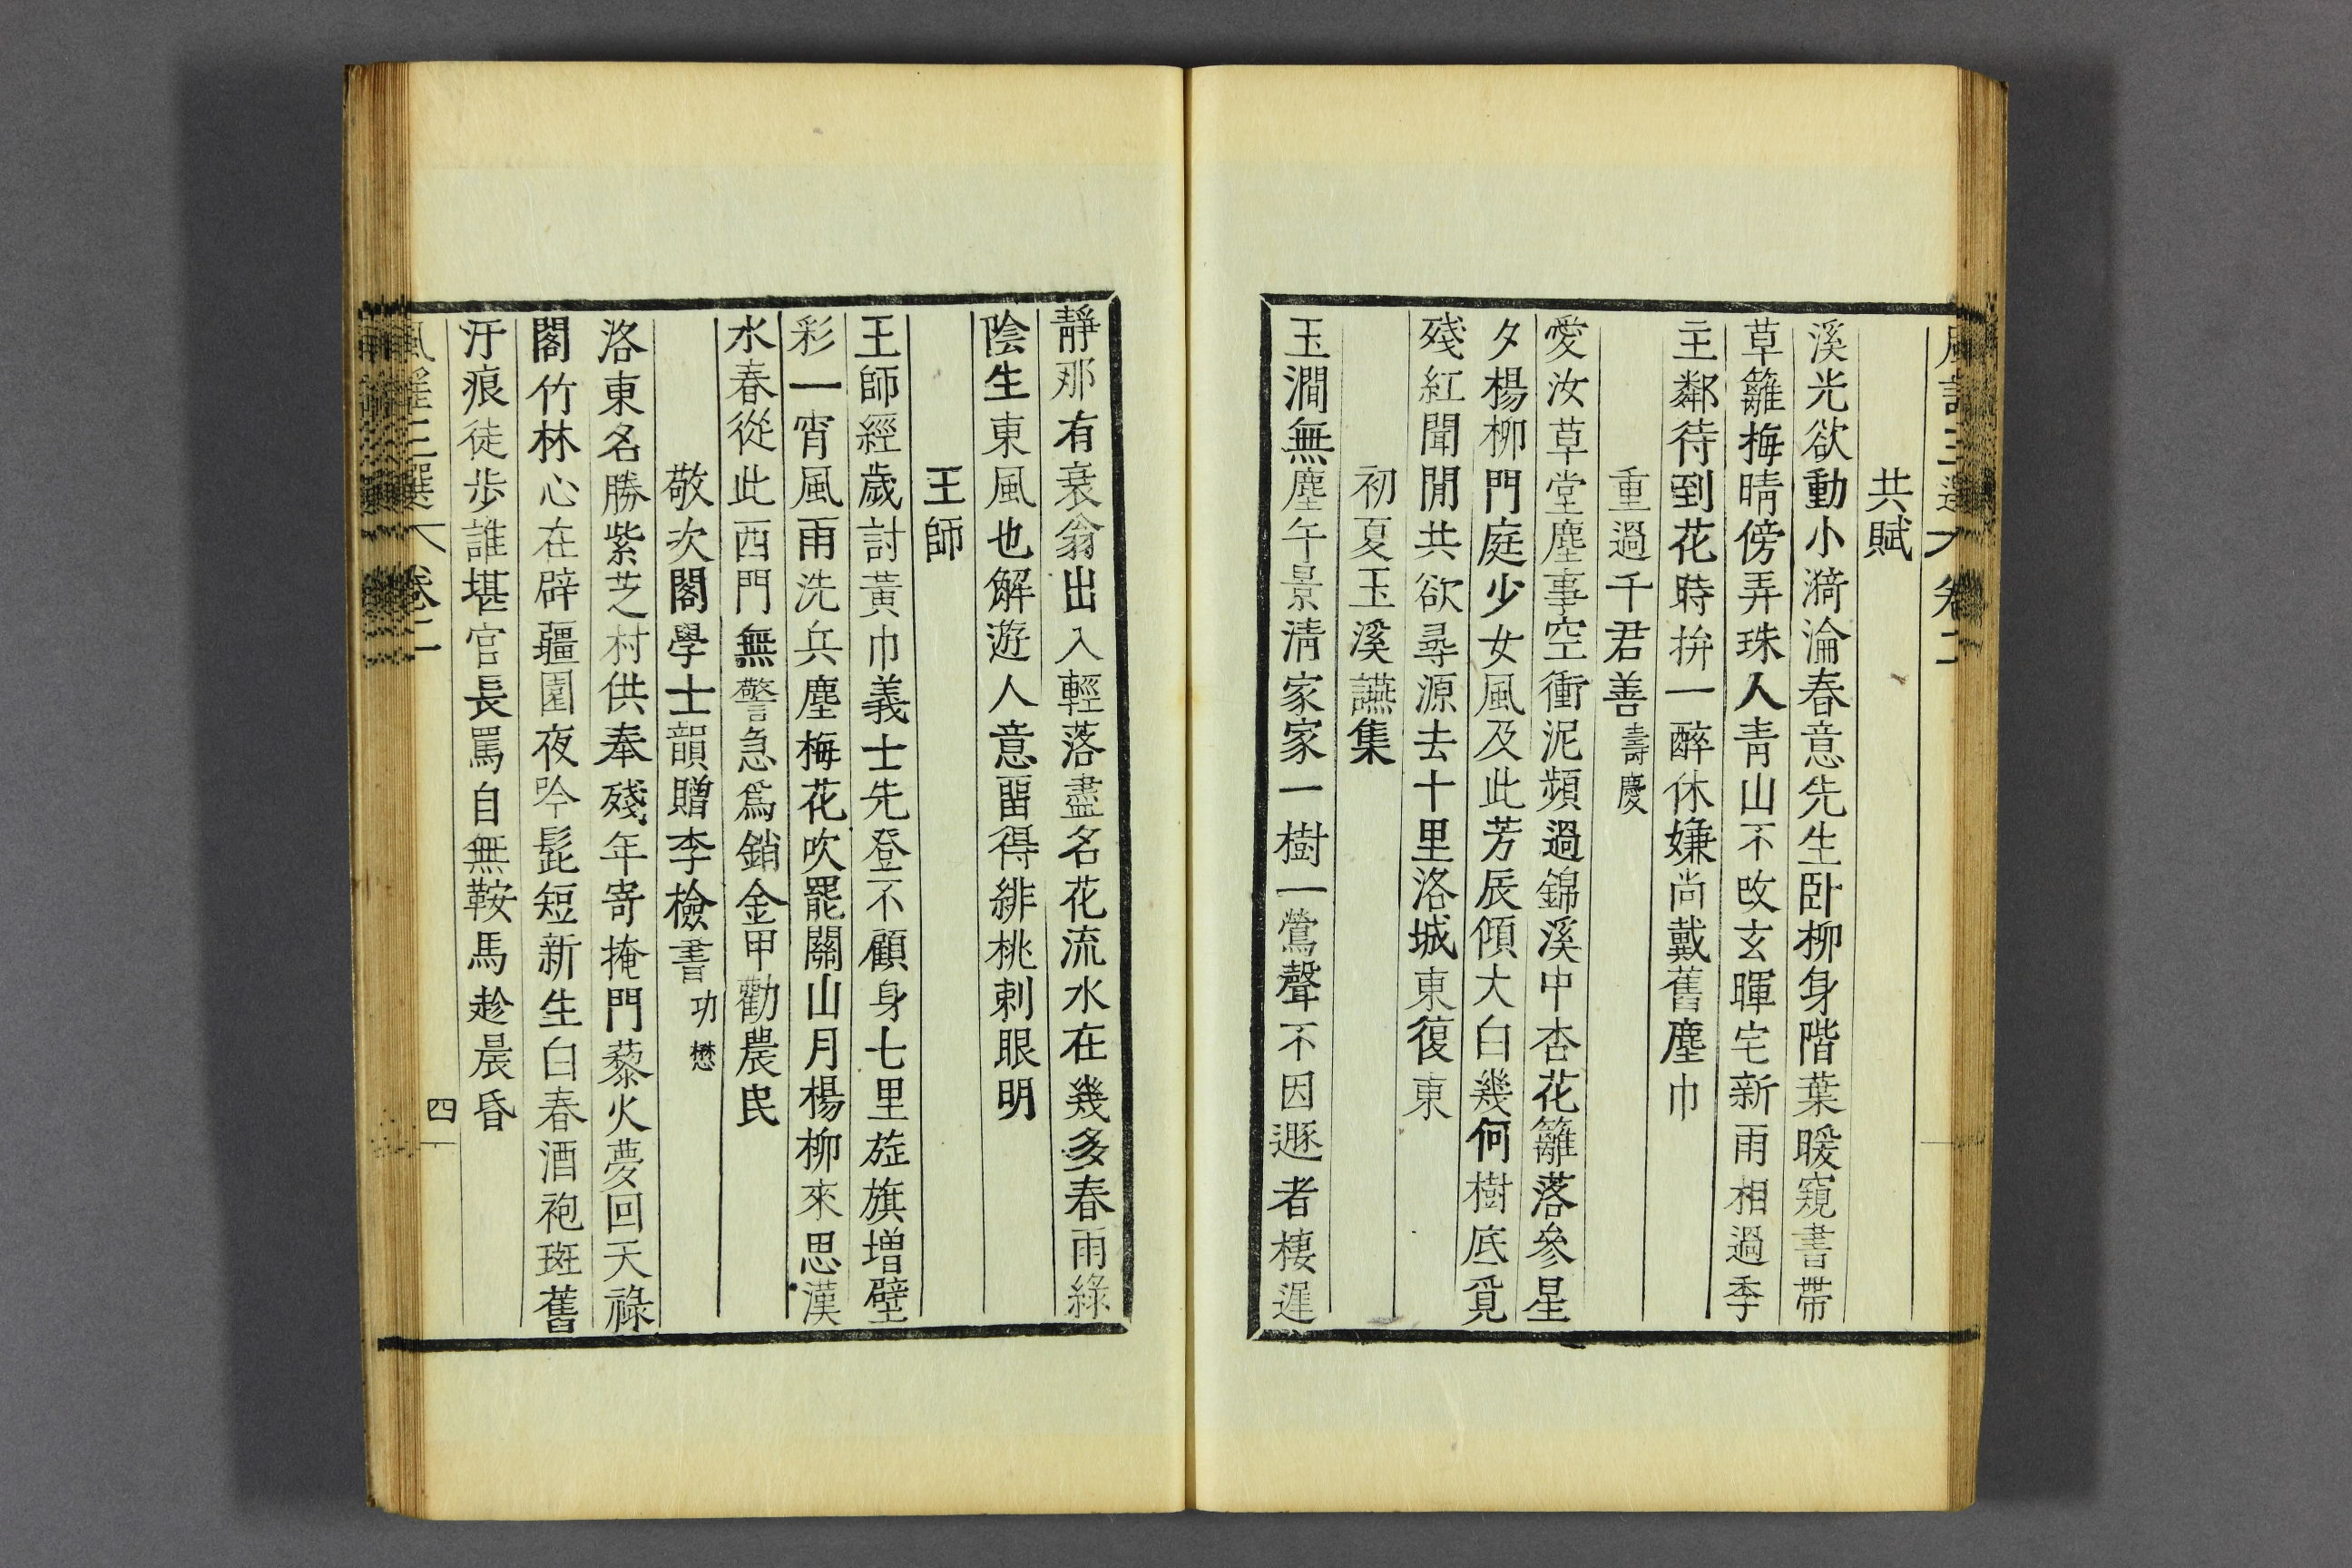 風謠三選 卷二
共賦
溪光欲動小漪淪春意先生卧柳身階葉暖窺書帶
草籬梅晴傍弄珠人靑山不改玄暉宅新雨相過季
主鄰待到花時拚一醉休嫌尚戴舊塵巾
重過千君善壽慶
愛汝草堂塵事空衝泥頻過錦溪中杏花籬落參星
夕楊柳門庭少女風及此芳辰傾大白幾何樹底覓
殘紅聞閒共欲尋源去十里洛城東復東
初夏玉溪讌集
玉澗無塵午景淸家家一樹一鶯聲不因遯者棲遲
靜那有衰翁出入輕落盡名花流水在幾多春雨綠
陰生東風也解遊人意留得緋桃刺眼明
王師
王師經歲討黃巾義士先登不顧身七里旌旗增壁
彩一宵風雨洗兵塵梅花吹罷關山月楊柳來思漢
水春從此西門無警急爲銷金甲勸農民
敬次閣學士韻贈李檢書功懋
洛東名勝紫芝村供奉殘年寄掩門藜火夢回天祿
閣竹林心在辟疆園夜吟髭短新生白春酒袍斑舊
汙痕徒步誰堪官長罵自無鞍馬趁晨昏
風謠三選 卷二 四